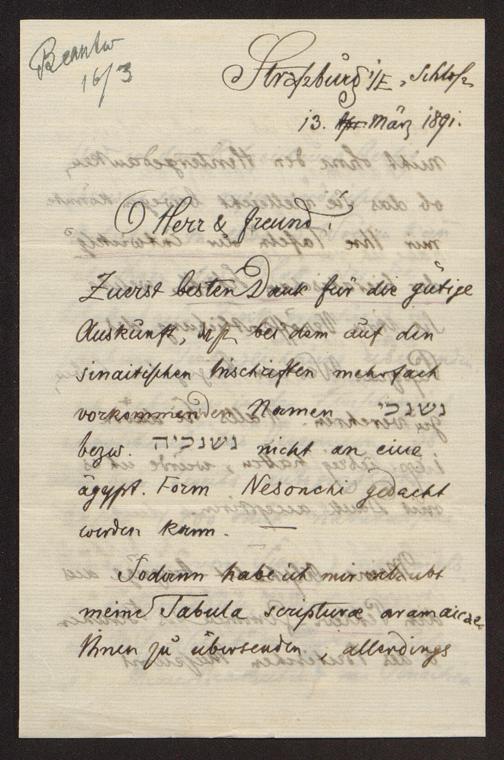 Beantw
16/3
Straßburg i/E, Schloß
13. März 1891.
O Herr & Freund!
Zuerst besten Dank für die gütige
Auskunft, daß bei dem auf den
sinaitischen Inschriften mehrfach
vorkommenden Namen נשנכי
bezw. נשנכיה nicht an eine
ägypt. Form Nesonchi gedacht
werden kann. —
Sodann habe ich mir erlaubt
meine Tabula scripturae aramaicae
Ihnen zu übersenden, allerdings